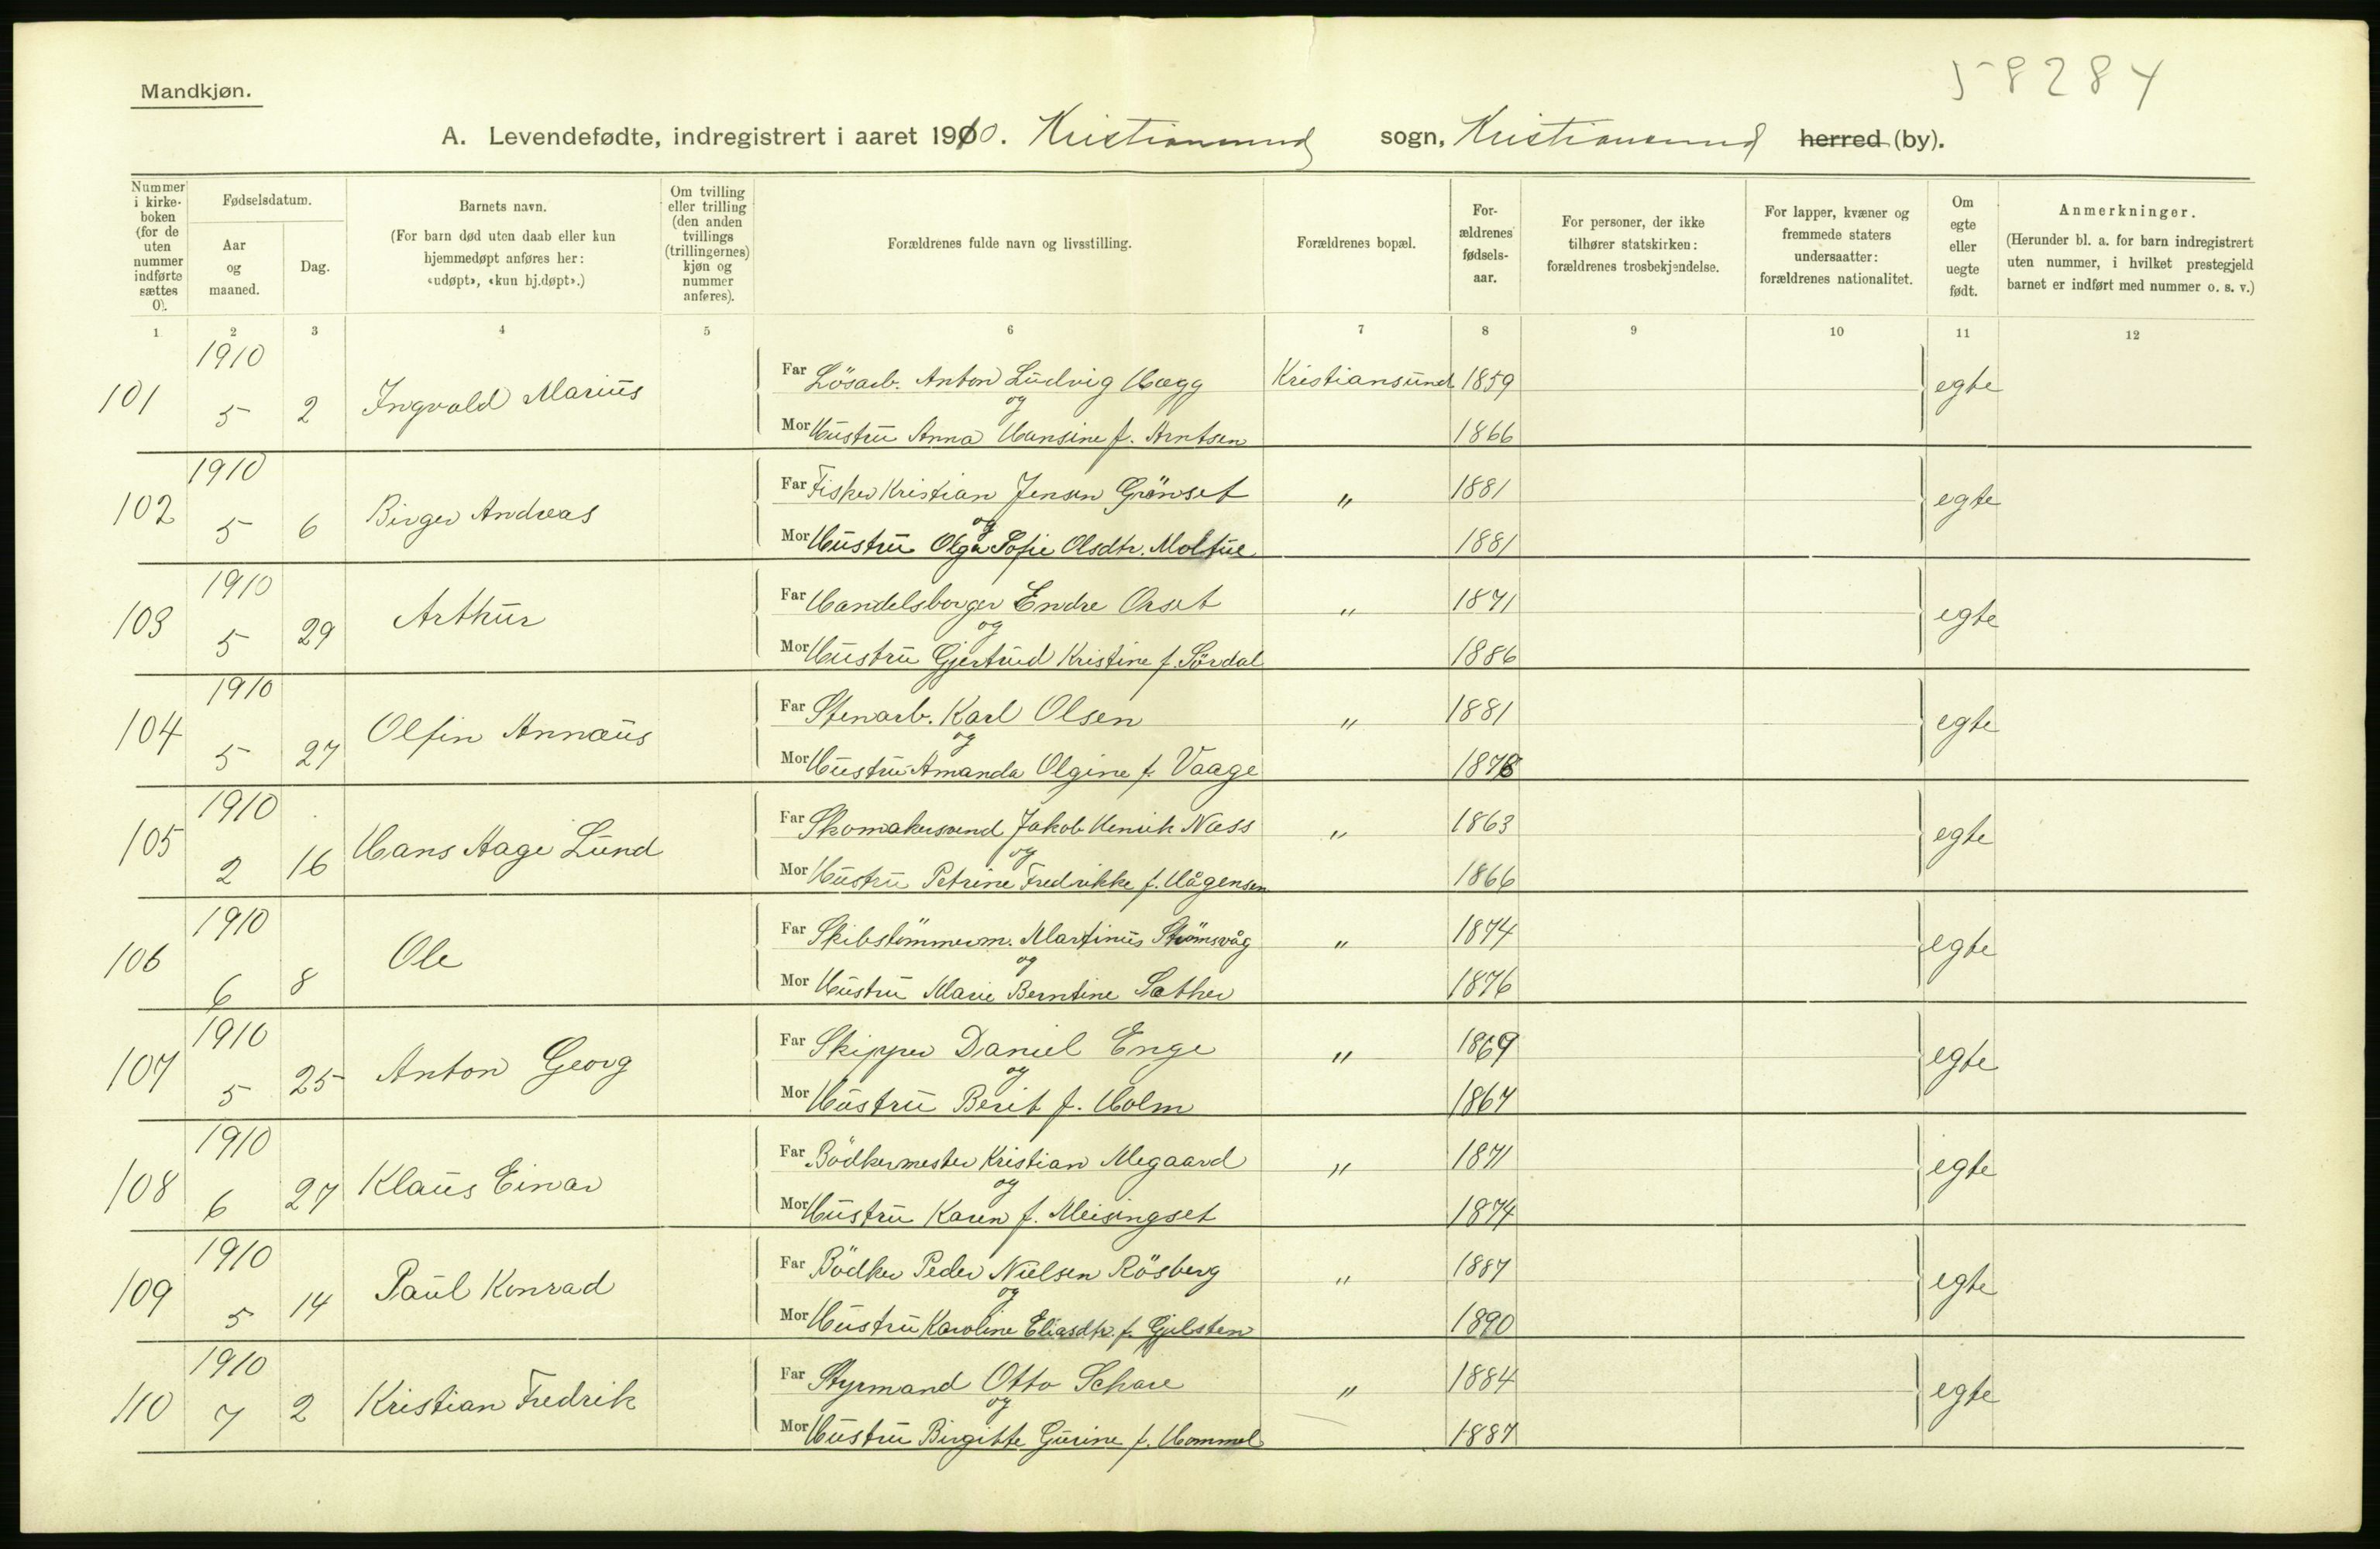 58284
Mandkjøn.
A. Levendefødte, indregistrert i aaret 1910. Kristiansund sogn, Kristiansund herred (by).
Nummer i kirke-boken (for de uten nummer indførte sættes 0).
Fødselsdatum.
Aar og maaned.
Dag.
Barnets navn.
(For barn død uten daab eller kun hjemmedøpt anføres her: «udøpt», «kun hj.døpt».)
Om tvilling eller trilling (den anden tvillings (trillingernes) kjøn og nummer anføres).
Forældrenes fulde navn og livsstilling.
Forældrenes bopæl.
For-ældrenes fødsels-aar.
For personer, der ikke tilhører statskirken: forældrenes trosbekjendelse.
For lapper, kvæner og fremmede staters undersaatter: forældrenes nationalitet.
Om egte eller uegte født.
Anmerkninger.
(Herunder bl. a. for barn indregistrert uten nummer, i hvilket prestegjeld barnet er indført med nummer o. s. v.)
1 2 3 4 5 6 7 8 9 10 11 12
101 1910 5 2 Ingvald Marius Far Lösarb. Anton Ludvig Hægg Kristiansund 1859 egte
og
Mor Hustru Anna Hansine f. Arntsen 1866
102 1910 5 6 Birger Andreas Far Fisker Kristian Jensen Grönset " 1881 egte
og
Mor Hustru Olga Sofie Olsdtr. Moltue 1881
103 1910 5 29 Arthur Far Handelsborger Endre Orset " 1871 egte
og
Mor Hustru Gjertrud Kristine f. Sördal 1886
104 1910 5 27 Olfin Annæus Far Stenarb. Karl Olsen " 1881 egte
og
Mor Hustru Amanda Olgine f. Vaage 1878
105 1910 2 16 Hans Aage Lund Far Skomakersvend Jakob Henrik Næss " 1863 egte
og
Mor Hustru Petrine Fredrikke f. Hågensen 1866
106 1910 6 8 Ole Far Skibstömmerm. Martinus Strömsvåg " 1874 egte
og
Mor Hustru Marie Berntine Sæther 1876
107 1910 5 25 Anton Georg Far Skipper Daniel Enge " 1869 egte
og
Mor Hustru Berit f. Holm 1867
108 1910 6 27 Klaus Einar Far Bödkermester Kristian Megaard " 1871 egte
og
Mor Hustru Karen f. Meisingset 1874
109 1910 5 14 Paul Konrad Far Bödker Peder Nielsen Rösberg " 1887 egte
og
Mor Hustru Karoline Eliasdtr. f. Gjelsten 1890
110 1910 7 2 Kristian Fredrik Far Styrmand Otto Schare " 1884 egte
og
Mor Hustru Birgitte Gurine f. Hommel 1887